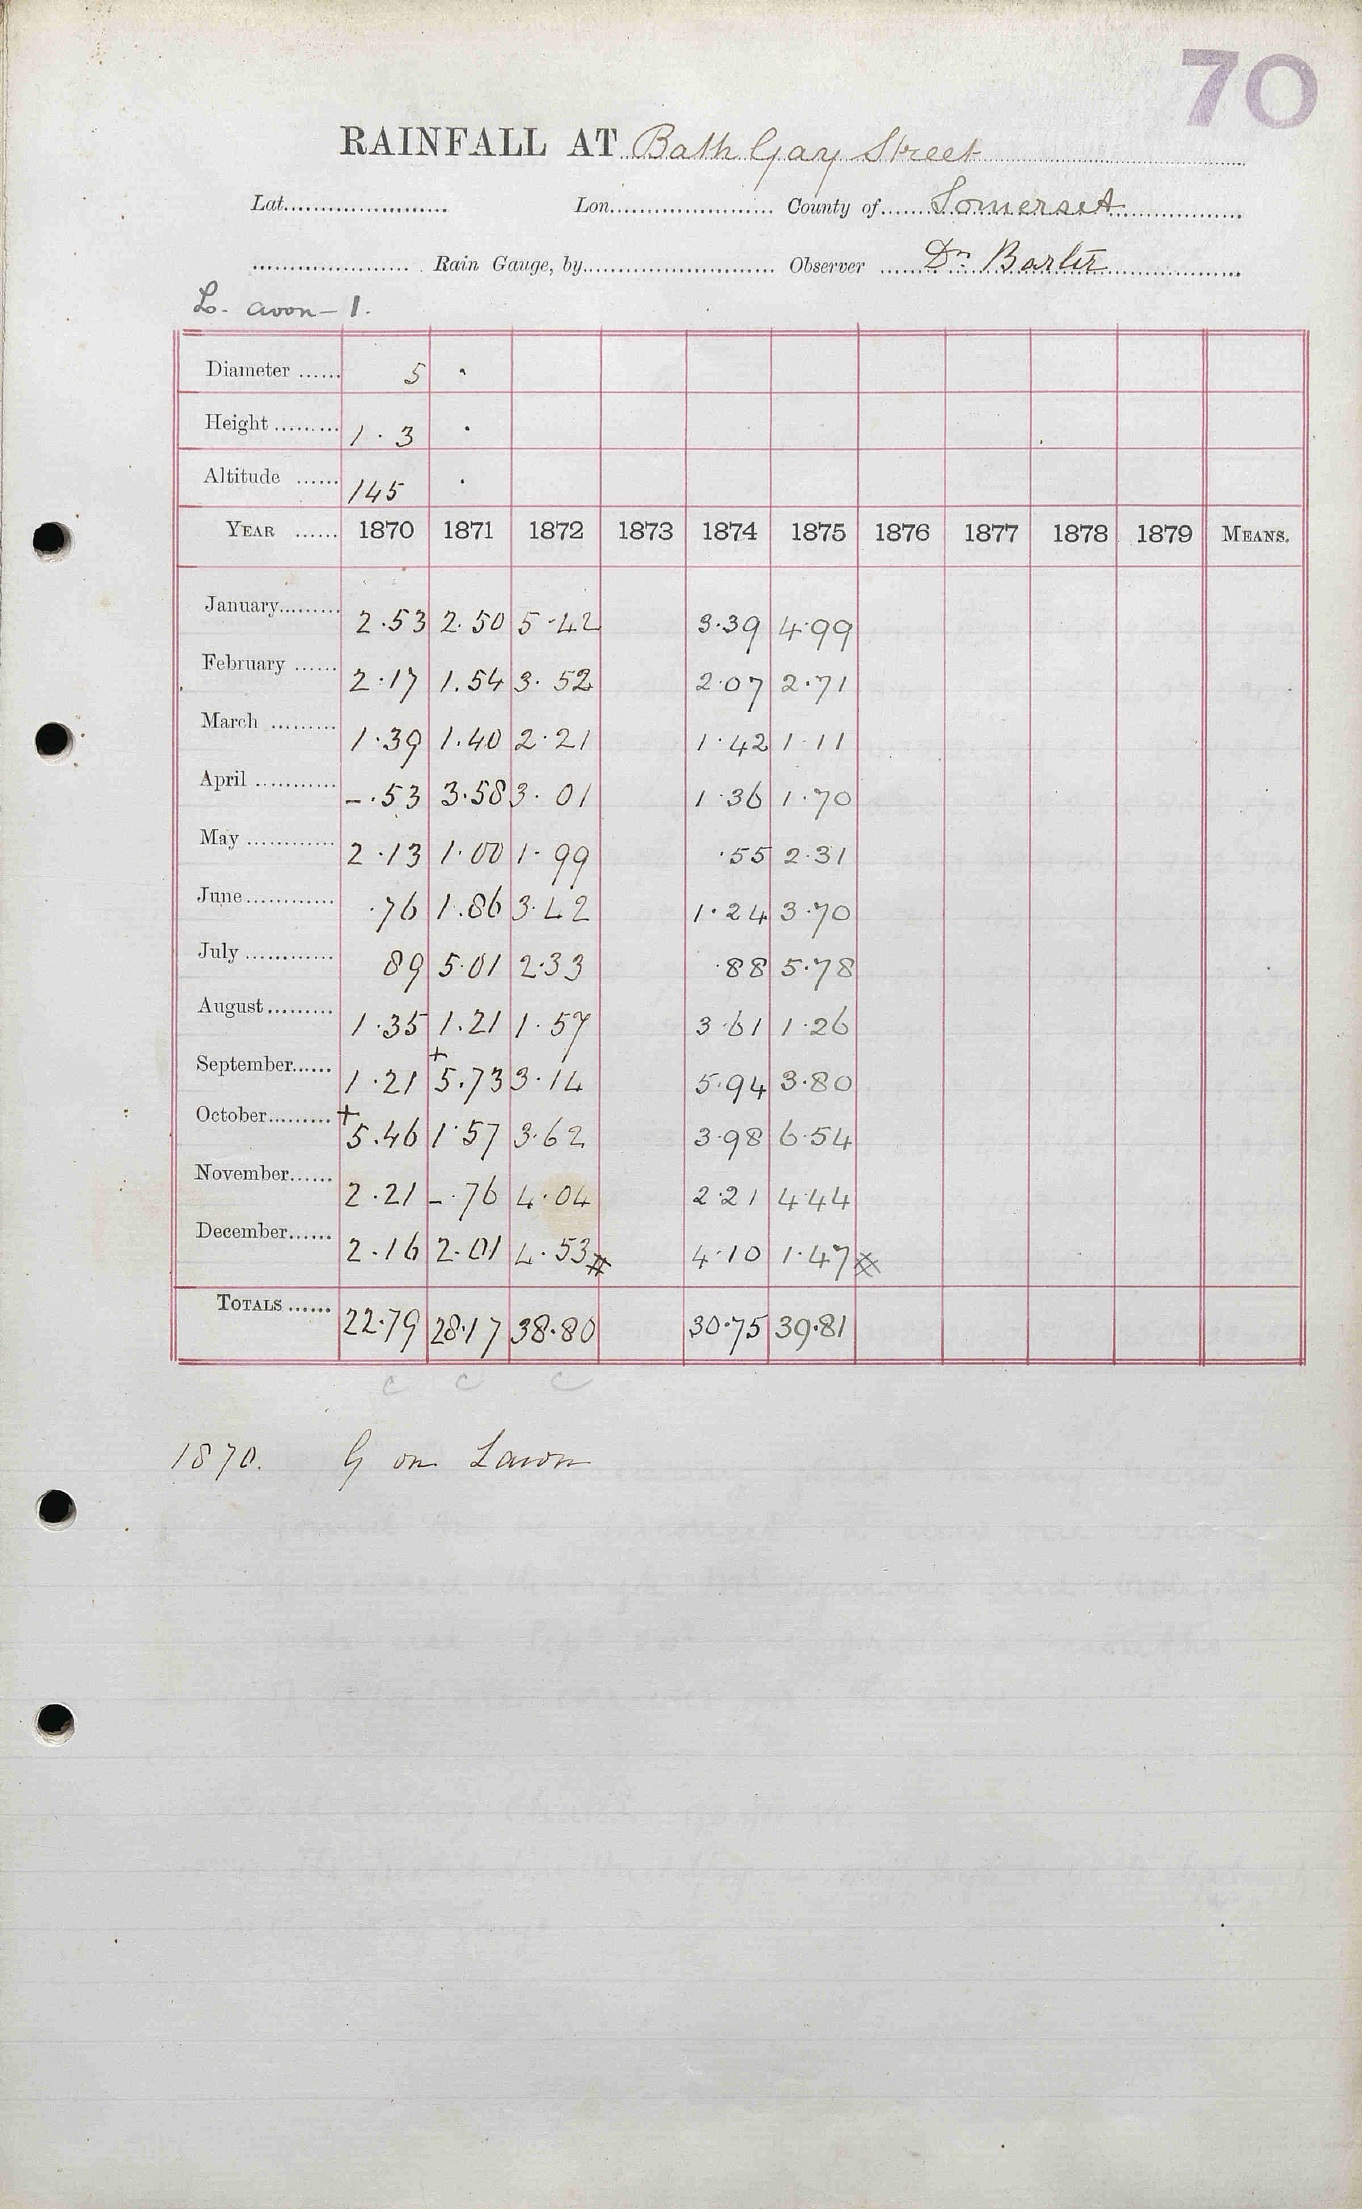 70
RAINFALL AT Bath Gay Street
Lat. Lon. County of Somerset
Rain Gauge, by Observer Dr Barter
L. avon - 1.
Diameter 5
Height 1.3
Altitude 145
YEAR 1870 1871 1872 1873 1874 1875 1876 1877 1878 1879 MEANS.
January 2.53 2.50 5.42 3.39 4.99
February 2.17 1.54 3.52 2.07 2.71
March 1.39 1.40 2.21 1.42 1.11
April -.53 3.58 3.01 1.36 1.70
May 2.13 1.00 1.99 .55 2.31
June .76 1.86 3.42 1.24 3.70
July 89 5.01 2.33 .88 5.78
August 1.35 1.21 1.57 3.61 1.26
September 1.21 +5.73 3.14 5.94 3.80
October +5.46 1.57 3.62 3.98 6.54
November 2.21 -.76 4.04 2.21 4.44
December 2.16 2.01 4.53# 4.10 1.47#
TOTALS 22.79 28.17 38.80 30.75 39.81
c c c
1870. G on Lawn